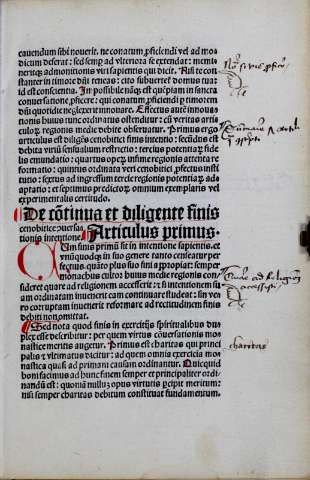 cauendum sibi nouerit. ne conatum ꝓficiendi vel ad mo-
dicum deserat: sed semꝑ ad vlteriora se extendat: memi-
neritqꝫ admonitionis viri sapientis qui dicit. Nisi te con-
stanter in timore dñi teneas: cito subuertet̃ domus tua:
id est conscientia. Impossibile nãqꝫ est quẽpiam in sancta
conuersatione ꝓficere: qui conatum ꝓficiendi ⁊ timorem
dñi quotidie neglexerit innouare. Effectus aũt innoua-
tionis huius tunc ordinatus ostenditur: cũ veritas arti-
culoꝝ regionis medie debite obseruatur. Primus ergo
articulus est diligẽs cenobitici finis intentio: secũdus est
debita viriũ sensualium restrictio: tercius potentiaꝝ fide
lis emundatio: quartus opeꝝ infime regionis attenta re
formatio: quintus ordinata veri cenobitici ꝓfectus insti
tutio: sextus ad ingressum tercie regionis potentiaꝝ ad
aptatio: et septimus predictoꝝ omnium exemplaris vel
experimentalis certitudo.
De cõtinua et diligente finis
cenobitice ꝯuersa-
tionis intentione Articulus primus.
Cum finis primũ sit in intentione sapientis. et
vnũquodqꝫ in suo genere tanto censeatur per
fectius. quãto plus suo fini aꝓpiat: semper
monachus cultor huius medie regionis con-
sideret quare ad religionem accesserit: ⁊ si intentionem su
am ordinatam inuenerit eam continuare studeat: sin ve-
ro corruptam inuenerit reformare ad rectitudinem finis
debiti non omittat.
Sed nota quod finis in exercitijs spiritualibus du-
plex esse describitur: per quem virtus cõuersationis mo-
nastice meritis augetur. Primus est charitas qui princi-
palis ⁊ vltimatus dicitur: ad quem omnia exercicia mo-
nastica quasi ad primam causam ordinantur. Quicquid
boni facimus ad hunc finem semper et principaliter ordi-
nandũ est: quoniã nullũ opus virtutis ꝯcipit meritum:
nisi semper charitas debitum constituat fundamentum.
charitas